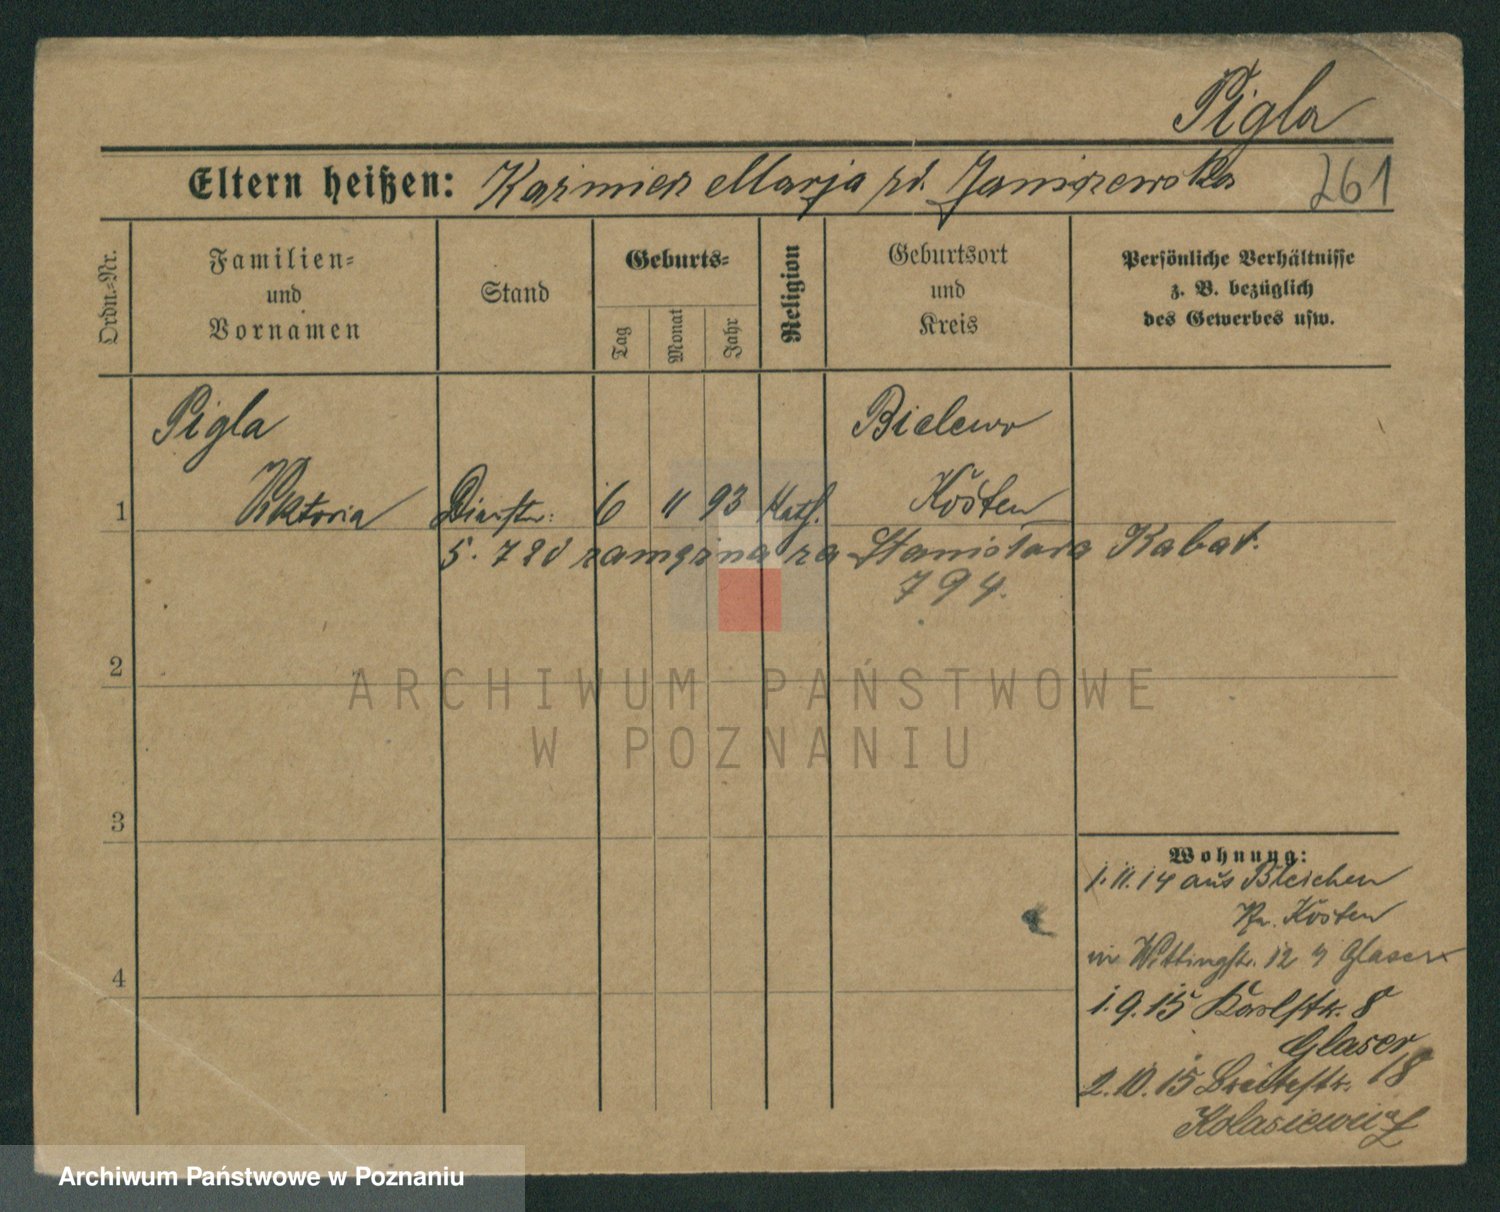 Pigla
Eltern heißen: Kazmierz Marja zd. Janiszewska 261
Ordn.-Nr.
Familien- und Vornamen
Stand
Geburts-
Tag
Monat
Jahr
Religion
Geburtsort und Kreis
Persönliche Verhältnisse z. B. bezüglich des Gewerbes usw.
Pigla Bielewo
1 Viktoria Dienstm: 6 11 93 Kath. Kosten
5. 7 20 zamężna za Stanisława Kabat.
794.
2
3
4
Wohnung:
1.11.14 aus Bleichen
Kr. Kosten
in Wittingstr. 12 Glaser
1.9.15 Karlstr. 8
Glaser
2.10.15 Breitestr. 18
Kolasiewicz
ARCHIWUM PAŃSTWOWE
W POZNANIU
Archiwum Państwowe w Poznaniu